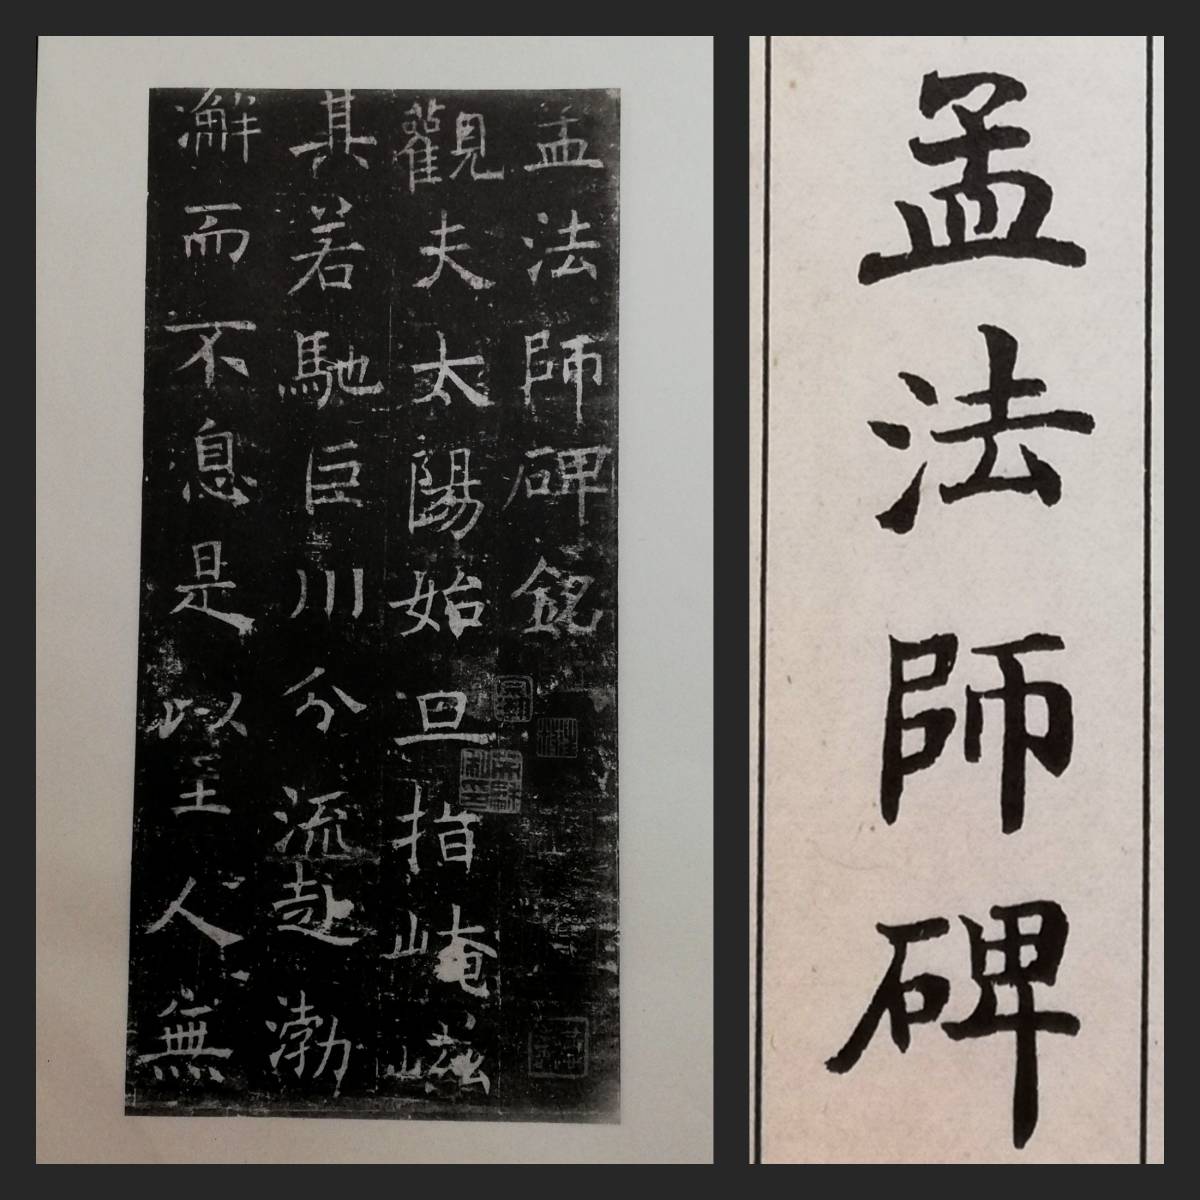 孟法師碑銘
觀夫太陽始旦指崦嵫
其若馳巨川分流赴渤
澥而不息是以至人無
孟法師碑